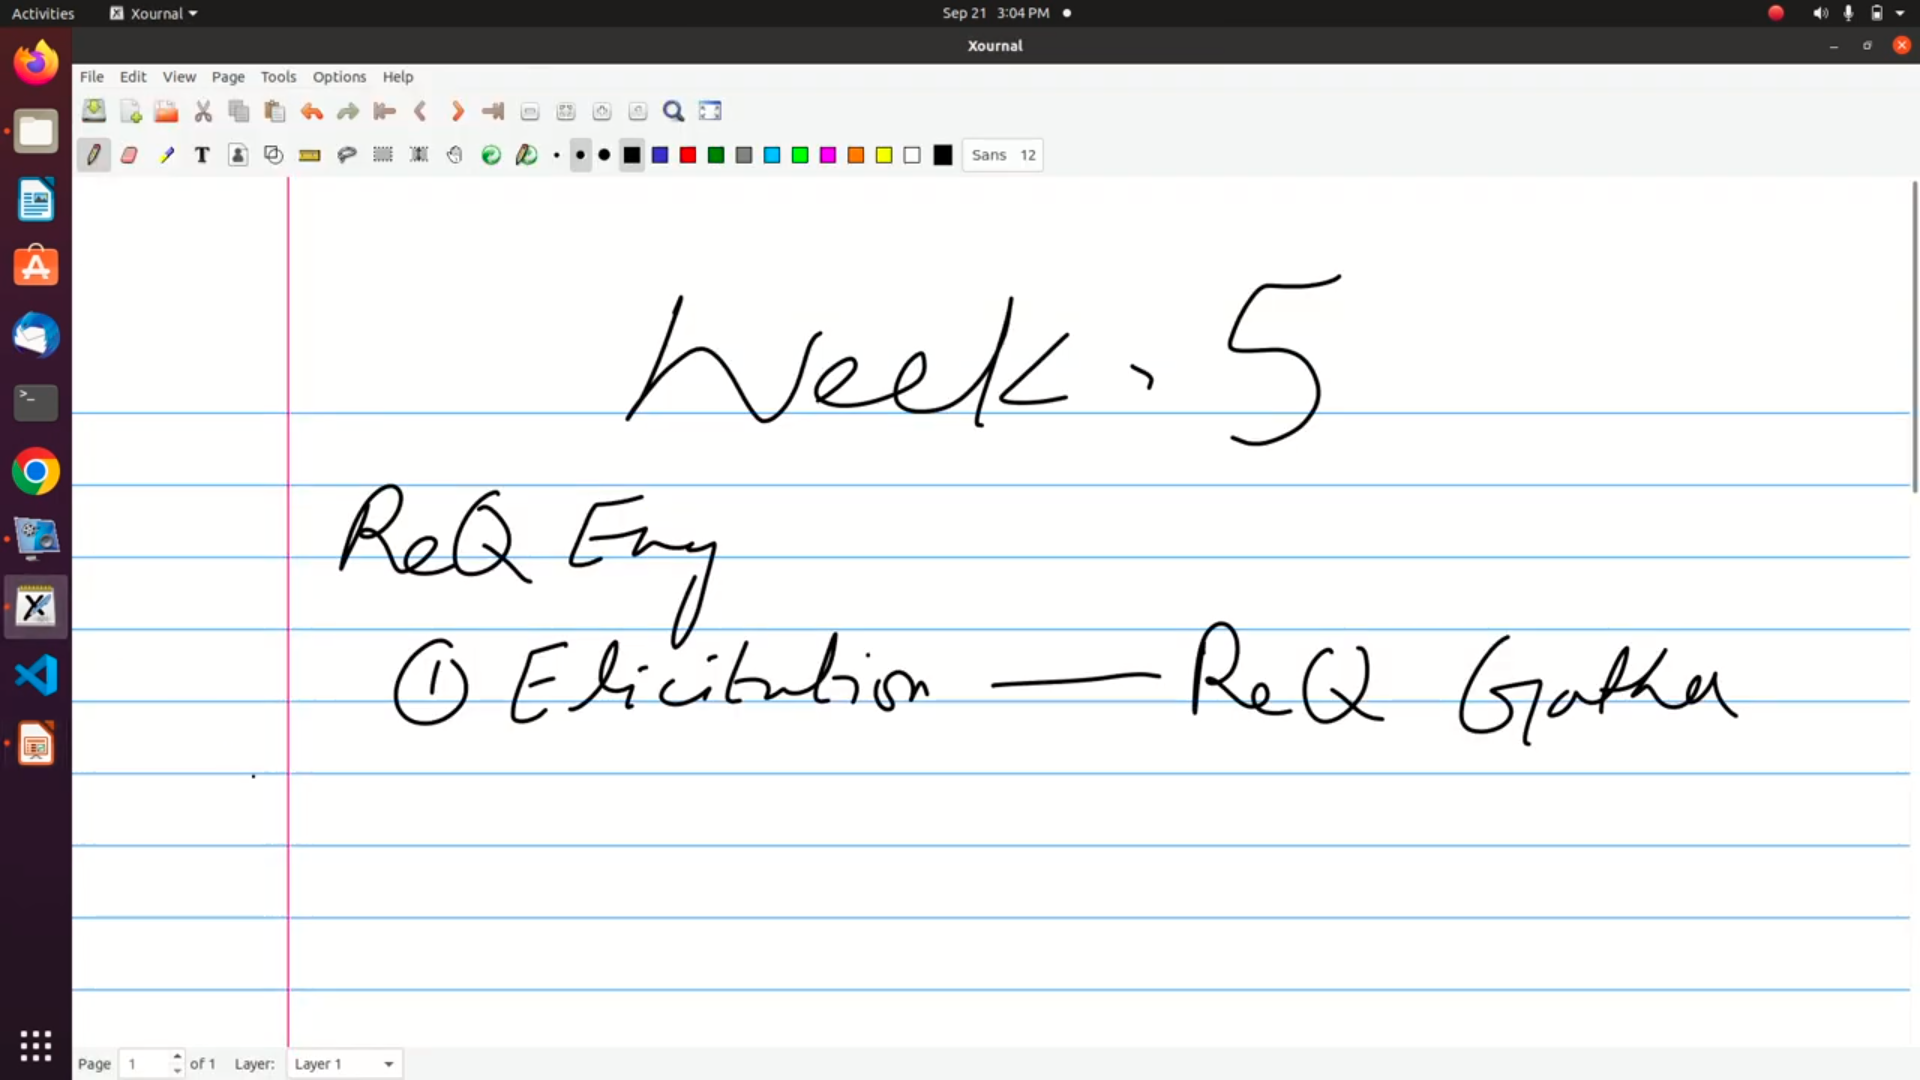 Activities Xournal Sep 21 3:04 PM
Xournal
File Edit View Page Tools Options Help
Sans 12
Week - 5
ReQ Eng
① Elicitation — ReQ Gather
Page 1 of 1 Layer: Layer 1